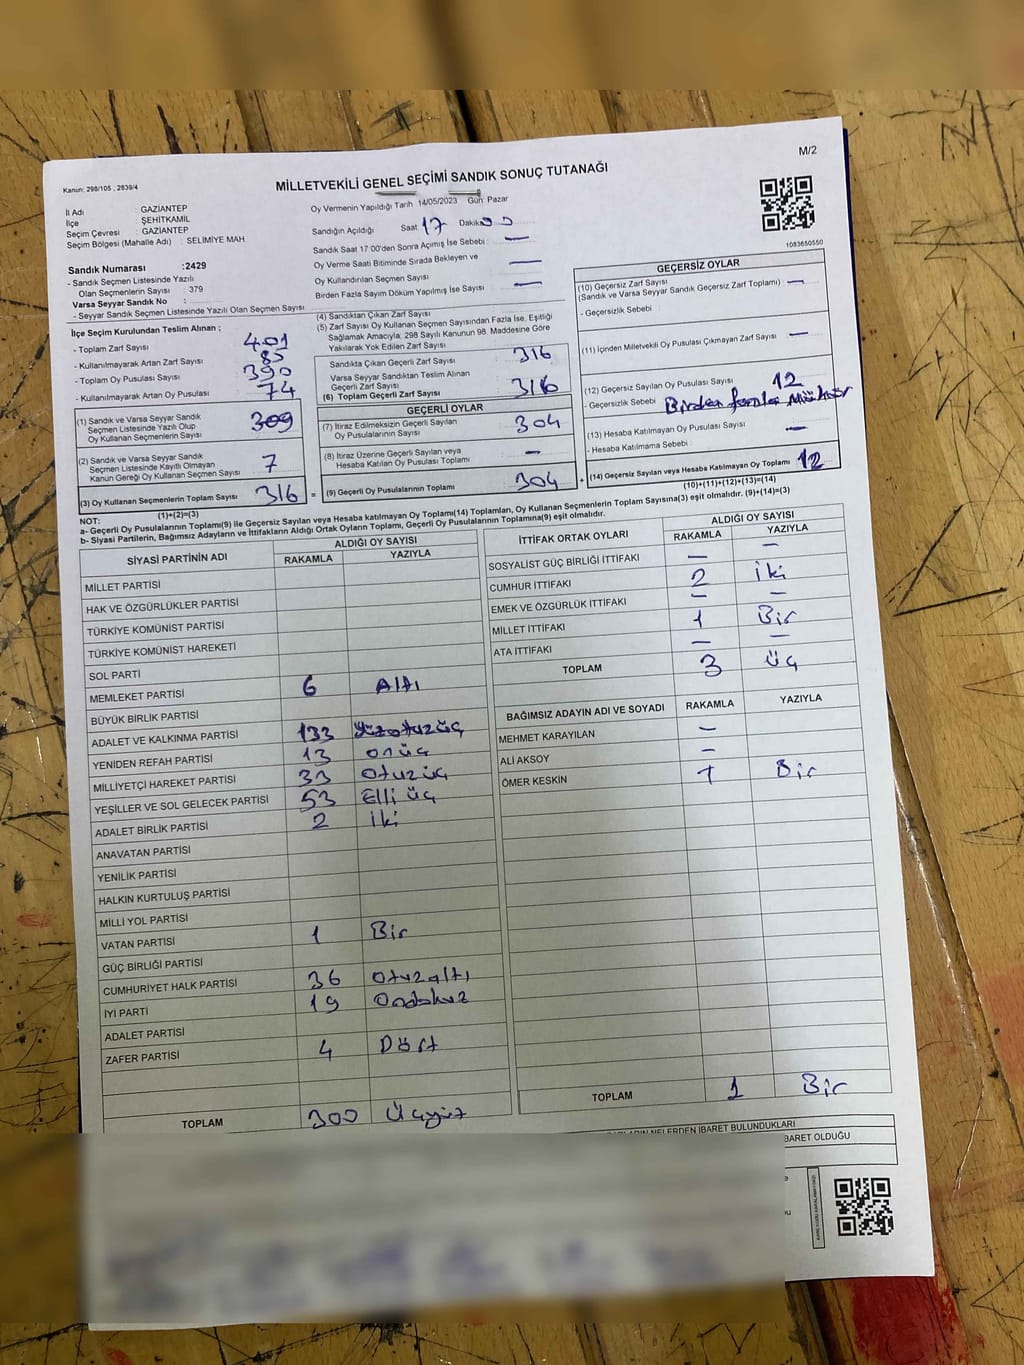 M/2
Kanun: 298/105 , 2839/4
MİLLETVEKİLİ GENEL SEÇİMİ SANDIK SONUÇ TUTANAĞI
İl Adı : GAZİANTEP
İlçe : ŞEHİTKAMİL
Seçim Çevresi : GAZİANTEP
Seçim Bölgesi (Mahalle Adı) : SELİMİYE MAH
Sandık Numarası :2429
- Sandık Seçmen Listesinde Yazılı
Olan Seçmenlerin Sayısı : 379
Varsa Seyyar Sandık No :
- Seyyar Sandık Seçmen Listesinde Yazılı Olan Seçmen Sayısı
Oy Vermenin Yapıldığı Tarih :14/05/2023 Gün: Pazar
Sandığın Açıldığı Saat 17 Dakika 00
Sandık Saat 17:00'den Sonra Açılmış İse Sebebi : —
Oy Verme Saati Bitiminde Sırada Bekleyen ve
Oy Kullandırılan Seçmen Sayısı —
Birden Fazla Sayım Döküm Yapılmış İse Sayısı —
1083650550
İlçe Seçim Kurulundan Teslim Alınan ;
- Toplam Zarf Sayısı 401
- Kullanılmayarak Artan Zarf Sayısı 85
- Toplam Oy Pusulası Sayısı 390
- Kullanılmayarak Artan Oy Pusulası 74
(1) Sandık ve Varsa Seyyar Sandık
Seçmen Listesinde Yazılı Olup
Oy Kullanan Seçmenlerin Sayısı 309
(2) Sandık ve Varsa Seyyar Sandık
Seçmen Listesinde Kayıtlı Olmayan
Kanun Gereği Oy Kullanan Seçmen Sayısı 7
(3) Oy Kullanan Seçmenlerin Toplam Sayısı 316
(1)+(2)=(3)
(4) Sandıktan Çıkan Zarf Sayısı
(5) Zarf Sayısı Oy Kullanan Seçmen Sayısından Fazla İse, Eşitliği
Sağlamak Amacıyla; 298 Sayılı Kanunun 98. Maddesine Göre
Yakılarak Yok Edilen Zarf Sayısı
Sandıkta Çıkan Geçerli Zarf Sayısı 316
Varsa Seyyar Sandıktan Teslim Alınan
Geçerli Zarf Sayısı
(6) Toplam Geçerli Zarf Sayısı 316
GEÇERLİ OYLAR
(7) İtiraz Edilmeksizin Geçerli Sayılan
Oy Pusulalarının Sayısı 304
(8) İtiraz Üzerine Geçerli Sayılan veya
Hesaba Katılan Oy Pusulası Toplamı —
= (9) Geçerli Oy Pusulalarının Toplamı 304
GEÇERSİZ OYLAR
(10) Geçersiz Zarf Sayısı
(Sandık ve Varsa Seyyar Sandık Geçersiz Zarf Toplamı) —
- Geçersizlik Sebebi :
(11) İçinden Milletvekili Oy Pusulası Çıkmayan Zarf Sayısı —
(12) Geçersiz Sayılan Oy Pusulası Sayısı 12
- Geçersizlik Sebebi Birden fazla Mühür
(13) Hesaba Katılmayan Oy Pusulası Sayısı —
- Hesaba Katılmama Sebebi
+ (14) Geçersiz Sayılan veya Hesaba Katılmayan Oy Toplamı 12
(10)+(11)+(12)+(13)=(14)
NOT:
a- Geçerli Oy Pusulalarının Toplamı(9) ile Geçersiz Sayılan veya Hesaba katılmayan Oy Toplamı(14) Toplamları, Oy Kullanan Seçmenlerin Toplam Sayısına(3) eşit olmalıdır. (9)+(14)=(3)
b- Siyasi Partilerin, Bağımsız Adayların ve İttifakların Aldığı Ortak Oyların Toplamı, Geçerli Oy Pusulalarının Toplamına(9) eşit olmalıdır.
SİYASİ PARTİNİN ADI ALDIĞI OY SAYISI
RAKAMLA YAZIYLA
MİLLET PARTİSİ
HAK VE ÖZGÜRLÜKLER PARTİSİ
TÜRKİYE KOMÜNİST PARTİSİ
TÜRKİYE KOMÜNİST HAREKETİ
SOL PARTİ
MEMLEKET PARTİSİ 6 Altı
BÜYÜK BİRLİK PARTİSİ
ADALET VE KALKINMA PARTİSİ 133 Yüzotuzüç
YENİDEN REFAH PARTİSİ 13 onüç
MİLLİYETÇİ HAREKET PARTİSİ 33 Otuzüç
YEŞİLLER VE SOL GELECEK PARTİSİ 53 Elli üç
ADALET BİRLİK PARTİSİ 2 İki
ANAVATAN PARTİSİ
YENİLİK PARTİSİ
HALKIN KURTULUŞ PARTİSİ
MİLLİ YOL PARTİSİ
VATAN PARTİSİ 1 Bir
GÜÇ BİRLİĞİ PARTİSİ
CUMHURİYET HALK PARTİSİ 36 Otuzaltı
İYİ PARTİ 19 Ondokuz
ADALET PARTİSİ
ZAFER PARTİSİ 4 Dört
TOPLAM 300 Üçyüz
İTTİFAK ORTAK OYLARI ALDIĞI OY SAYISI
RAKAMLA YAZIYLA
SOSYALİST GÜÇ BİRLİĞİ İTTİFAKI — —
CUMHUR İTTİFAKI 2 İki
EMEK VE ÖZGÜRLÜK İTTİFAKI — —
MİLLET İTTİFAKI 1 Bir
ATA İTTİFAKI — —
TOPLAM 3 Üç
BAĞIMSIZ ADAYIN ADI VE SOYADI RAKAMLA YAZIYLA
MEHMET KARAYILAN —
ALİ AKSOY —
ÖMER KESKİN 1 Bir
TOPLAM 1 Bir
NELERDEN İBARET BULUNDUKLARI
İBARET OLDUĞU